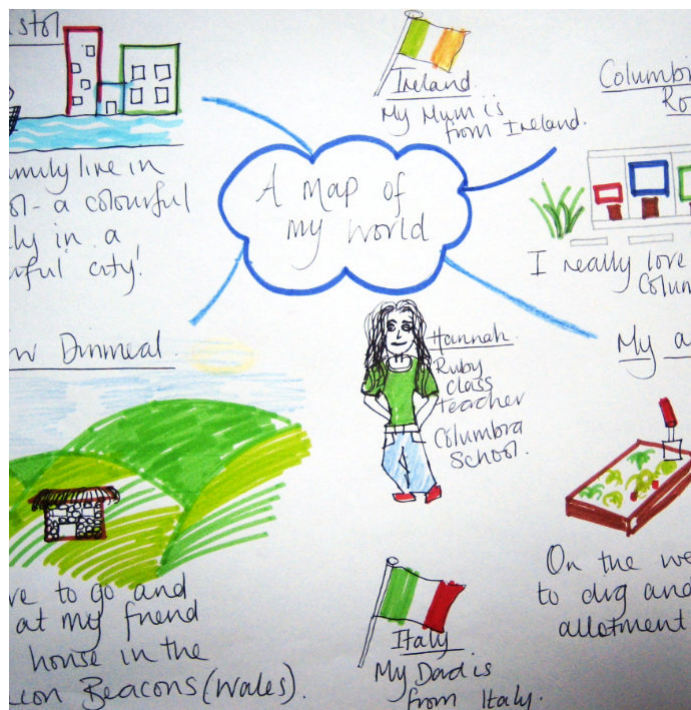 stol
amily live in
ol - a colourful
ly in a
rful city!
A map of
my world
Ireland.
My Mum is
from Ireland.
Columbi
Ro
I really love
Colum
w Dinmeal.
Hannah.
Ruby
class
teacher
Columbia
School.
My a
ve to go and
at my friend
house in the
con Beacons (Wales).
Italy
My Dad is
from Italy.
On the we
to dig and
allotment